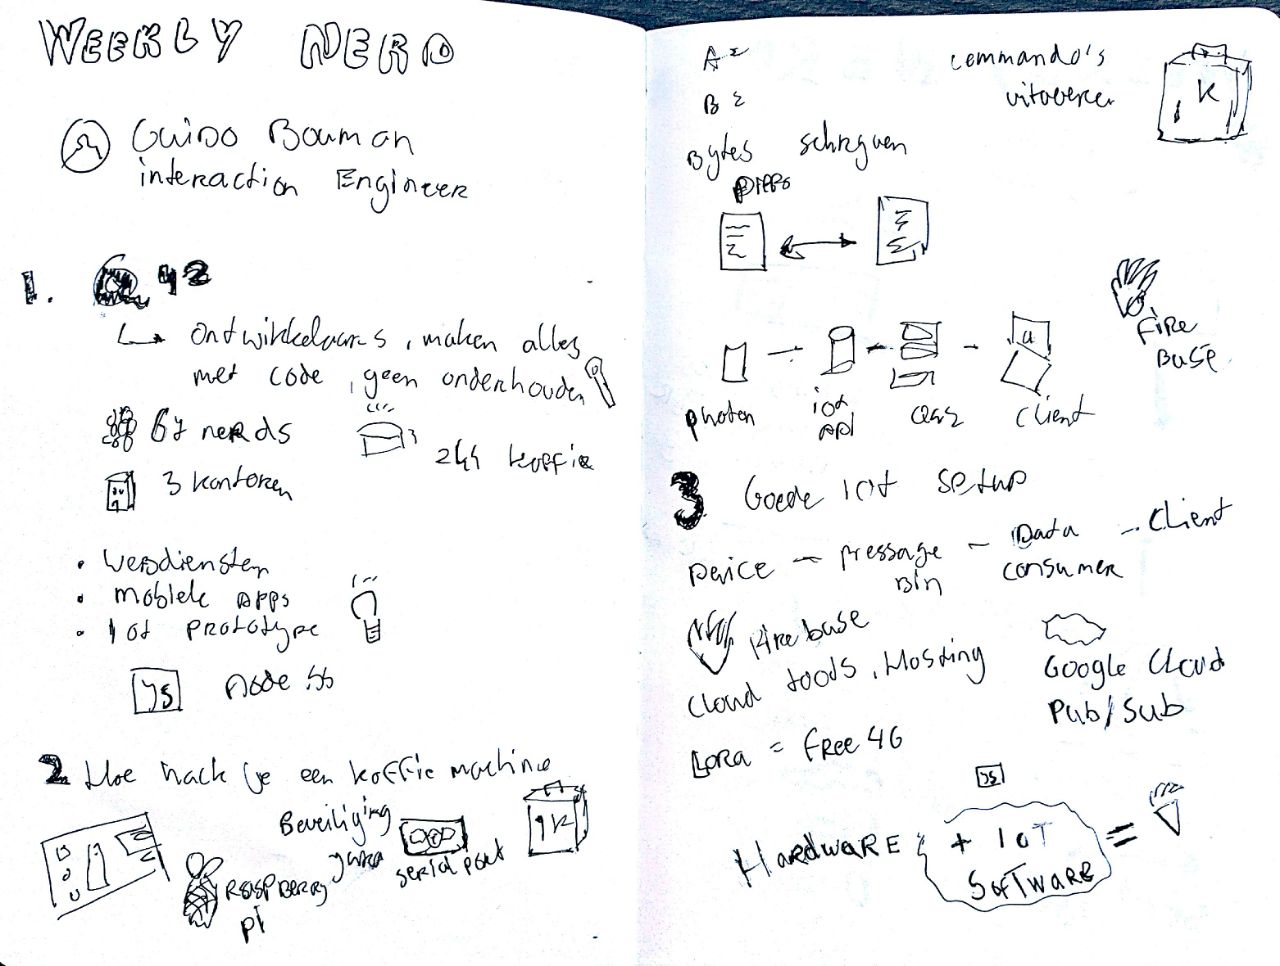 WEEKLY NERD
Guido Bouman
interaction Engineer
1. Q42
ontwikkelaars, maken alles
met code, geen onderhouden
67 nerds
244 koffie
3 kantoren
• Webdiensten
• mobiele apps
• iot prototype
JS node
2 Hoe hack je een koffie machine
Beveiliging
serial port
Raspberry
pi
K
A =
B =
Bytes schrijven
commando's
uitvoeren
K
Fire
Base
photon
iot
API
client
3 Goede IOT setup
Device - message
bin
- Data
consumer
- Client
Firebase
cloud tools, Hosting
Google Cloud
Pub/Sub
Lora = free 4G
JS
Hardware + IoT
Software =